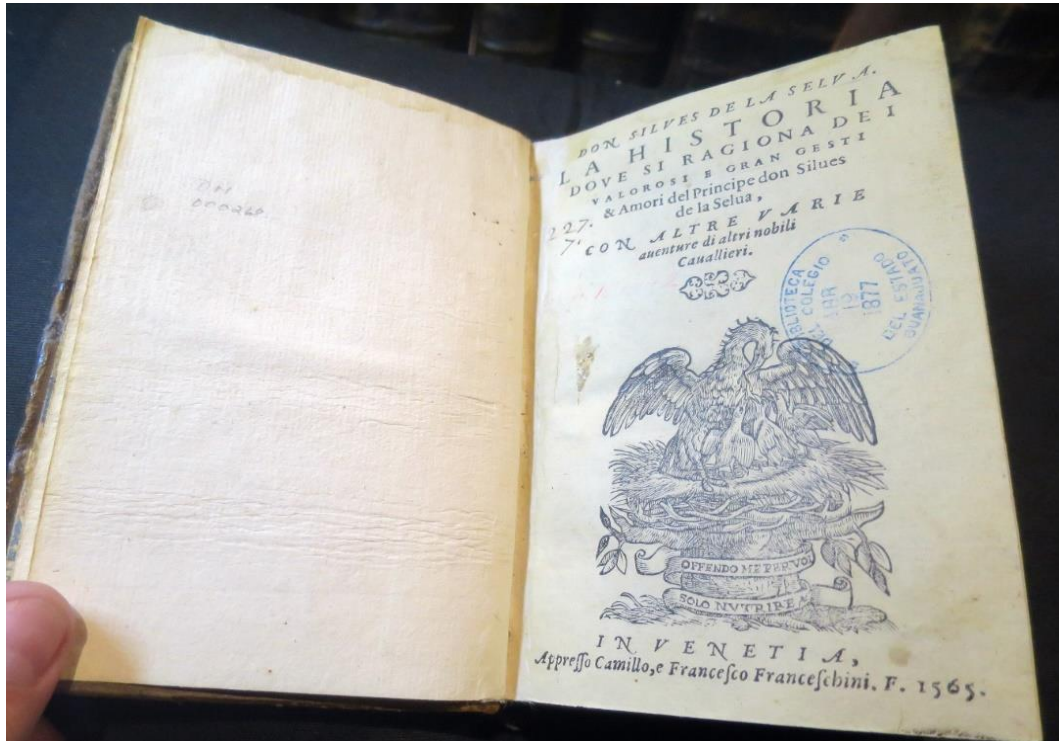 000260
DON SILVES DE LA SELVA.
LA HISTORIA
DOVE SI RAGIONA DEI
VALOROSI E GRAN GESTI
& Amori del Principe don Silues
de la Selua,
227.
7.
CON ALTRE VARIE
auenture di altri nobili
Cauallieri.
BIBLIOTECA
DEL COLEGIO
ABR
19
1877
DEL ESTADO
GUANAJUATO
OFFENDO ME PER VOI
SOLO NVTRIRE
IN VENETIA,
Appresso Camillo, e Francesco Franceschini. F. 1565.